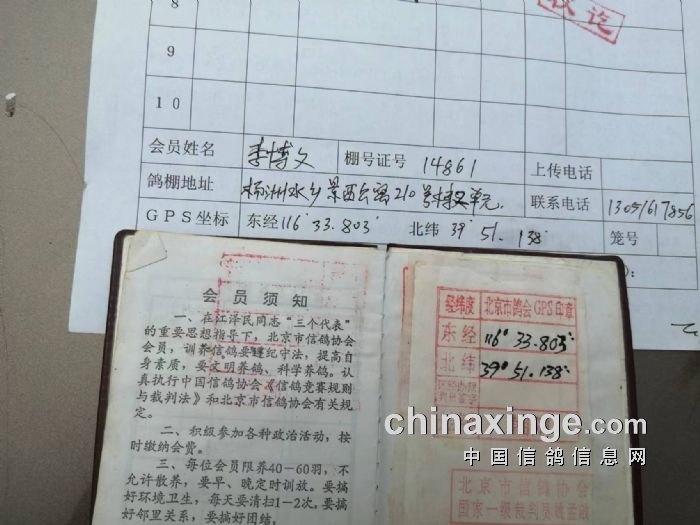 8
9
10
会员姓名 李博文 棚号证号 14861 上传电话
鸽棚地址 杨洲水乡景西台路210号楼 单元 联系电话 13051617856
GPS坐标 东经116° 33.803′ 北纬 39° 51.138′ 笼号
会员须知
一、在江泽民同志“三个代表”
的重要思想指导下,北京市信鸽协会
会员,训养信鸽要遵纪守法,提高自
身素质,要文明养鸽、科学养鸽。认
真执行中国信鸽协会《信鸽竞赛规则
与裁判法》和北京市信鸽协会有关规
定。
二、积极参加各种政治活动,按
时缴纳会费。
三、每位会员限养40—60羽,不
允许散养,要早、晚定时训放。要搞
好环境卫生,每天要清扫1—2次。要搞
好邻里关系,要搞好团结。
经纬度 北京市鸽会GPS印章
东经 116° 33.803′
北纬 39° 51.138′
chinaxinge.com
中国信鸽信息网
北京市信鸽协会
国家一级裁判员